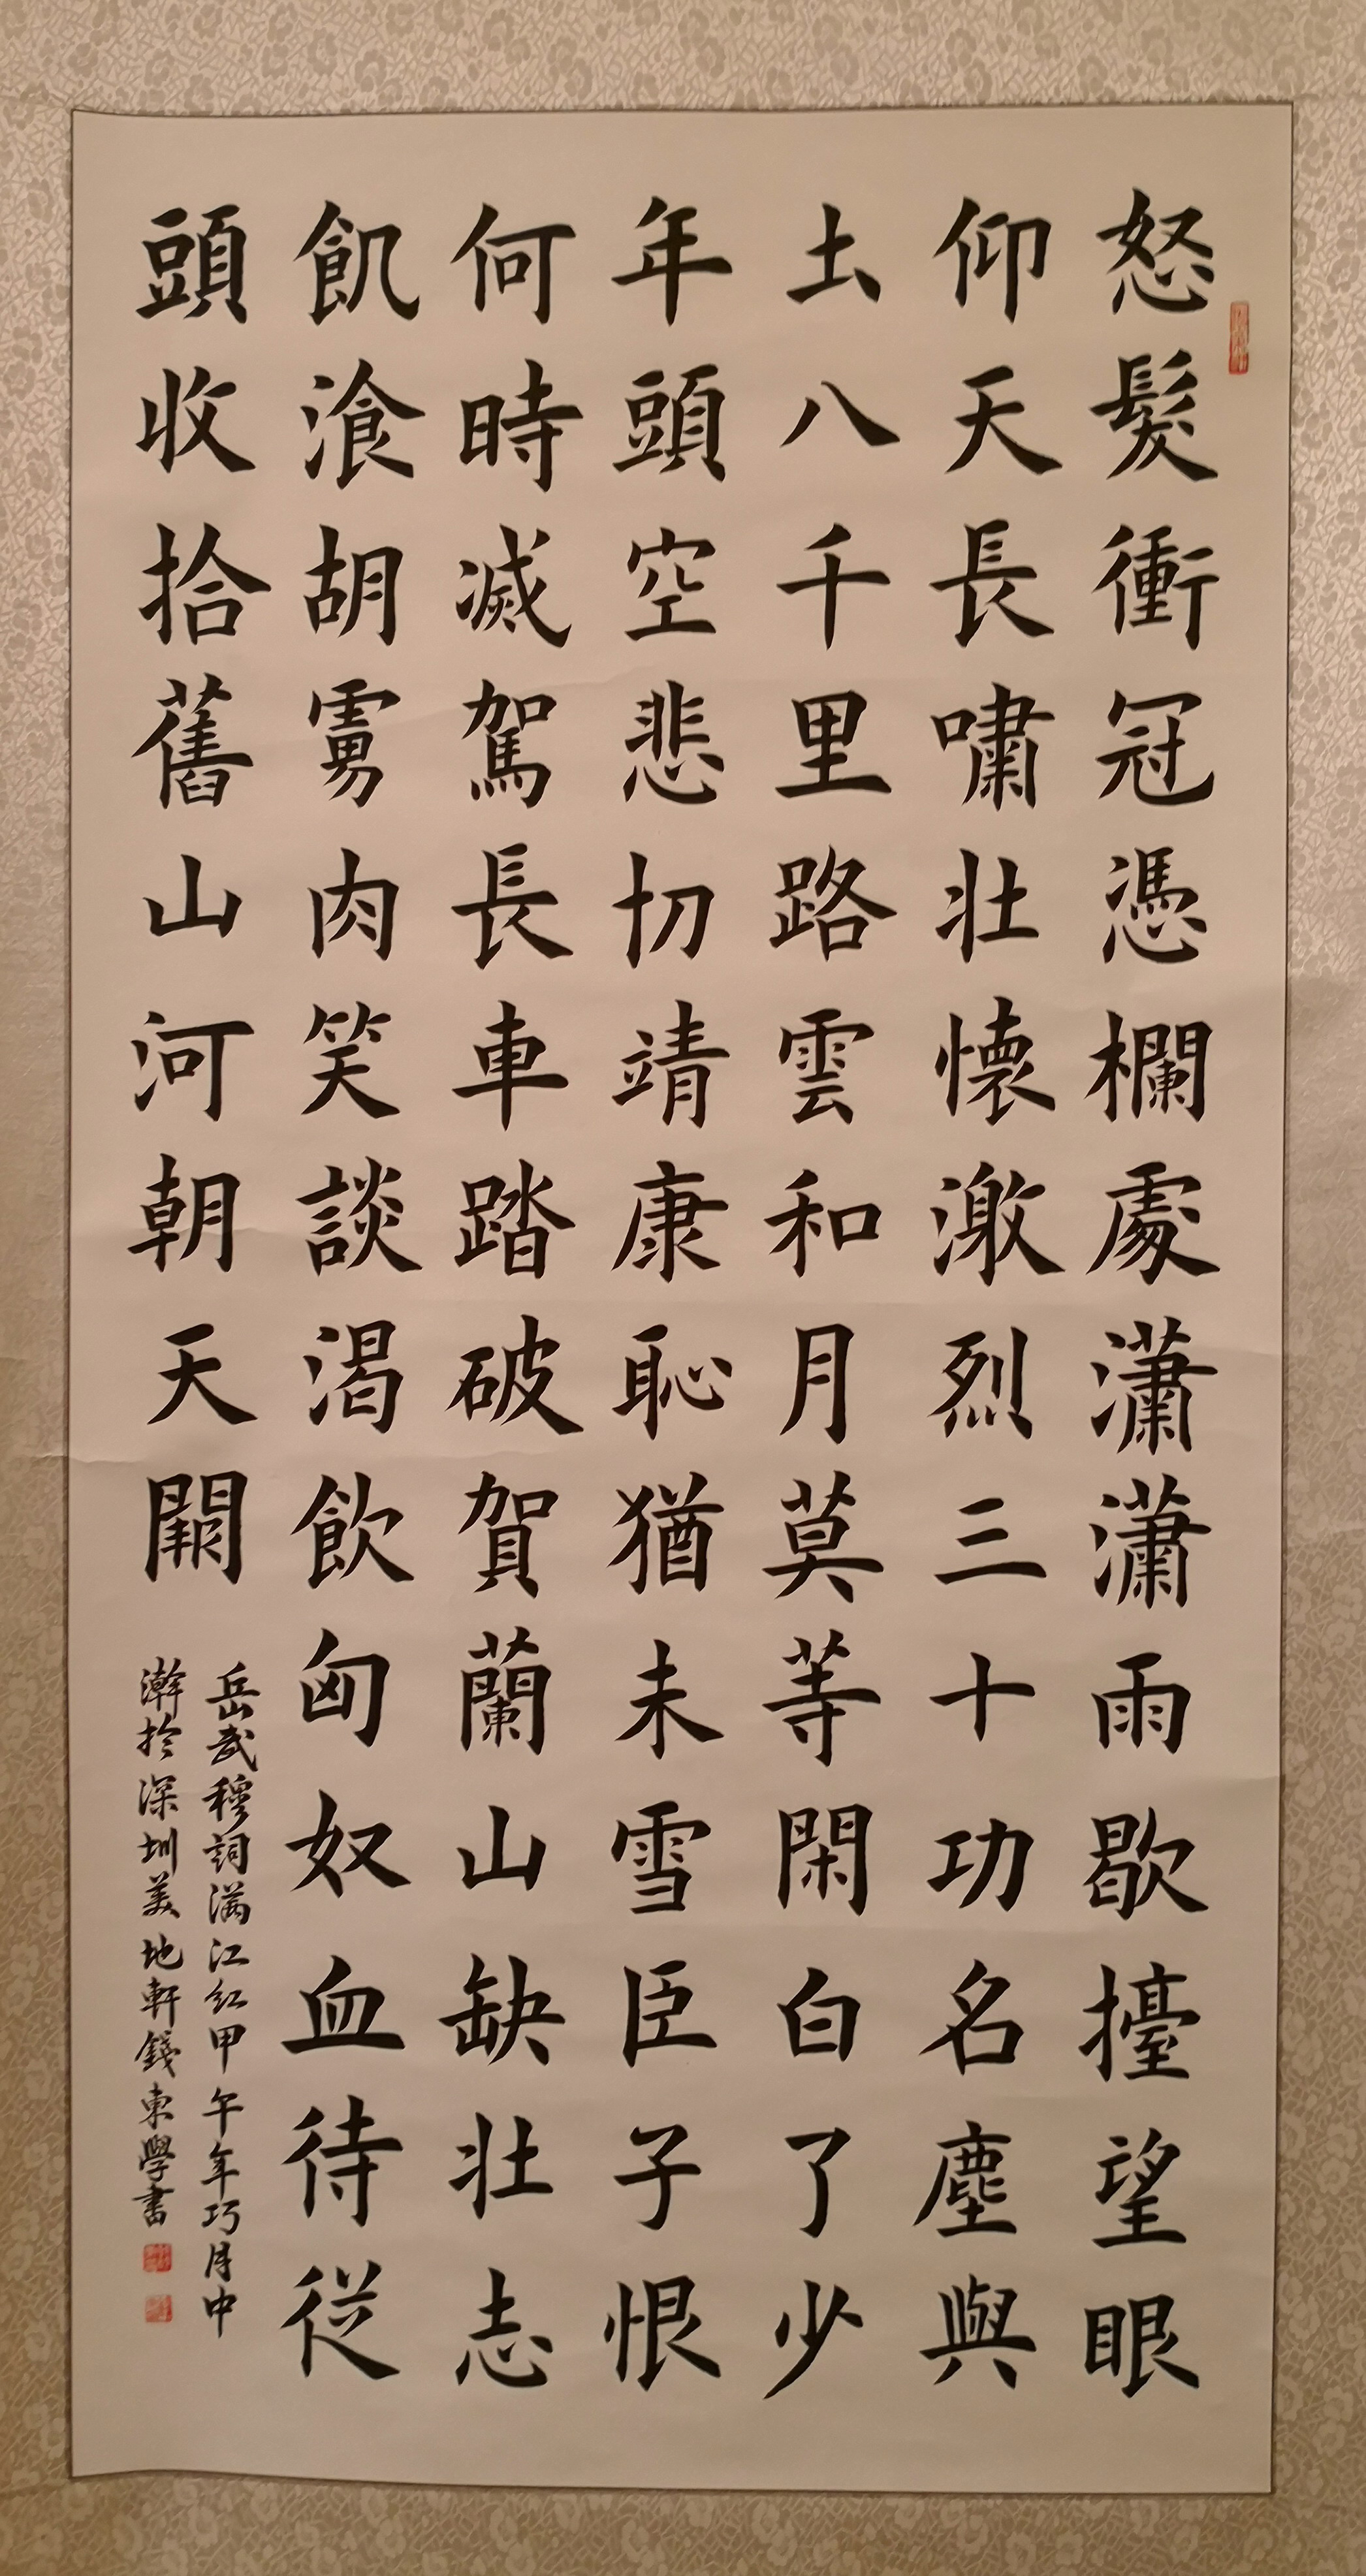 怒髮衝冠憑欄處瀟瀟雨歇擡望眼
仰天長嘯壯懷激烈三十功名塵與
土八千里路雲和月莫等閑白了少
年頭空悲切靖康恥猶未雪臣子恨
何時滅駕長車踏破賀蘭山缺壯志
飢飡胡虜肉笑談渴飲匈奴血待從
頭收拾舊山河朝天闕
岳武穆詞滿江紅甲午年巧月中
瀚於深圳美地軒錢東學書